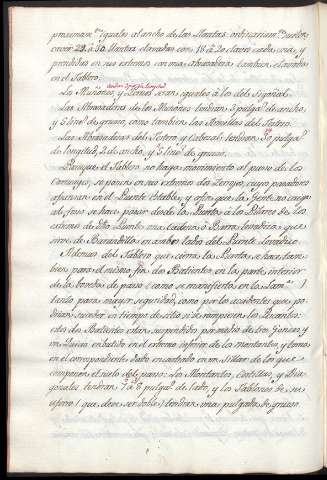 proximam.te iguales al ancho de las Llantas: ordinariam.te suelen
tener 22, à 30. Llantas clavadas con 18 à 20 clavos cada una, y
prendidas en sus extremos con una abrazadera tambien clavada
en el Tablero.
Los Muñones, y seran iguales à los del Espigal.
Las Abrazaderas de los Muñones tendran 3 pulg.s de ancho,
y 5 line.s de grueso, como tambien las Armellas del Testero.
Las Abrazaderas del Testero, y Cabezal, tendran pulga.s
de longitud, 2 de ancho, y 5 line.s de grueso.
Para que el Tablero no haga movimiento al pasar de los
Carruajes, se ponen en sus extremos dos Cerrojos, cuyos pasadores
afianzan en el Puente Estable, y afin que la Gente, no caiga
al foso se hace pasar desde la Puerta à los Pilares de los
extremos de dho Puente una cadena, ò Barra, tendida que
sirve de Barandilla en ambos lados del Puente Levadizo.
Ademas del Tablero que cierra la Puerta se hace tam-
bien para el mismo fin dos Batientes en la parte interior
de la boveda de paso (como se manifiesta en la Lam.a
tanto para mayor seguridad, como por los accidentes que po-
drian suceder en tiempo de sitio si se rompiesen los Levantes:
estos dos Batientes estan suspendidos por medio de dos Gonces, y
un Quicio embutido en el extremo inferior de los montantes, y toma
en el correspondiente dado encastrado en un Sillar de los que
componen el suelo del paso: Los Montantes, Costillas, y Dia-
gonales tendran 7 à 8 pulga.s de lado, y los Tablones de su
aforro (que deve ser doble) tendran una pulgada de grueso.